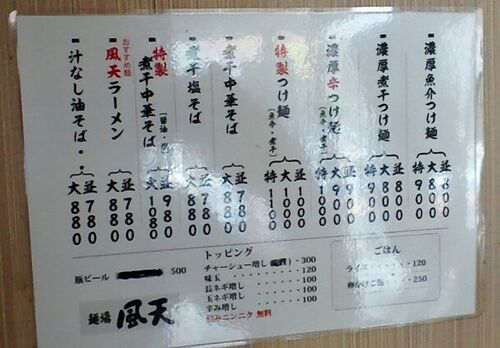 ■濃厚魚介つけ麺
並 800
大 800
特 900
■濃厚煮干つけ麺
並 800
大 800
特 900
■濃厚辛つけ麺
(魚介・煮干)
並 900
大 900
特 1000
■特製つけ麺
(魚介・煮干)
並 1000
大 1000
特 1100
■煮干中華そば
並 780
大 880
■煮干塩そば
並 780
大 880
■特製煮干中華そば
並 980
大 1080
おすすめ麺
■風天ラーメン
並 780
大 880
■汁なし油そば・・
並 780
大 880
トッピング
チャーシュー増し ・300
味玉 120
長ネギ増し 100
玉ネギ増し 100
辛み増し 100
刻みニンニク 無料
ごはん
ライス 120
卵かけご飯 250
瓶ビール 500
麺場 風天